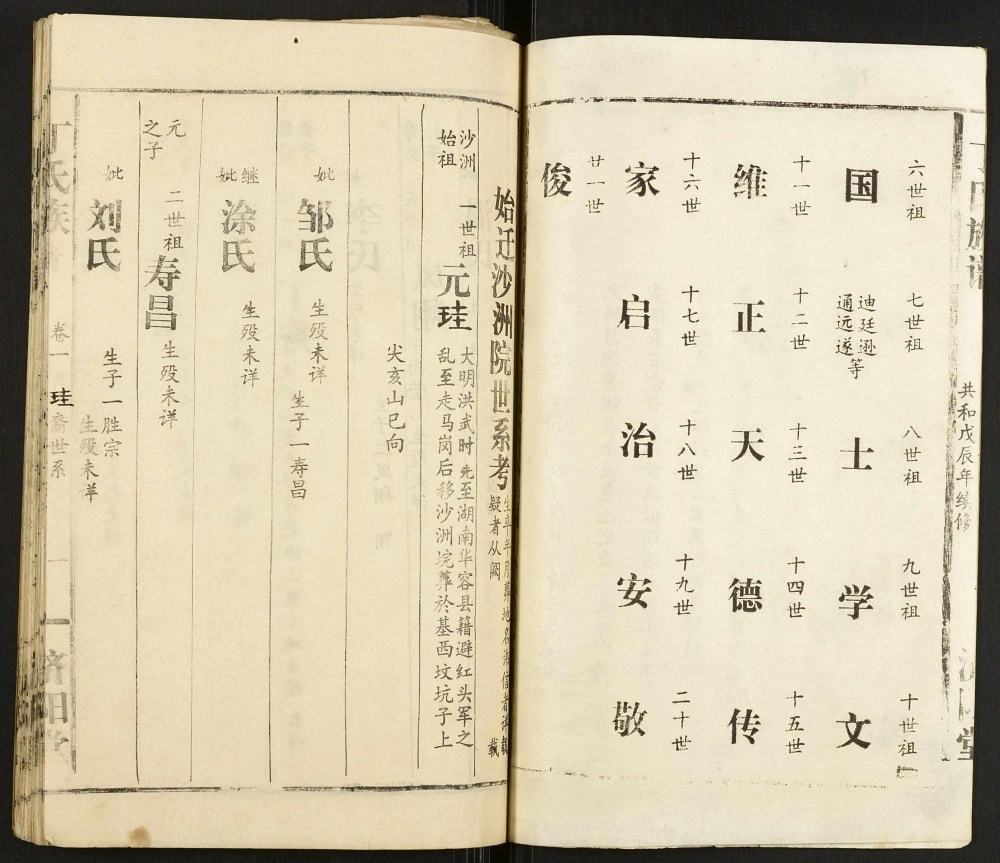 共和戊辰年续修
六世祖 国
七世祖 迪廷逊
通远遂等
八世祖 士
九世祖 学
十世祖 文
十一世 维
十二世 正
十三世 天
十四世 德
十五世 传
十六世 家
十七世 启
十八世 治
十九世 安
二十世 敬
廿一世 俊
始迁沙洲院世系考
生卒年月葬地名
疑者从阙
沙洲
始祖
一世祖 元珪
大明洪武时先至湖南华容县籍避红头军之
乱至走马岗后移沙洲垸葬於基西坟坑子上
尖亥山巳向
妣 邹氏 生殁未详 生子一寿昌
继妣 涂氏 生殁未详
元
之子
二世祖 寿昌 生殁未详
妣 刘氏 生子一胜宗
生殁未详
丁氏族
卷一 珪裔世系 一
济阳堂